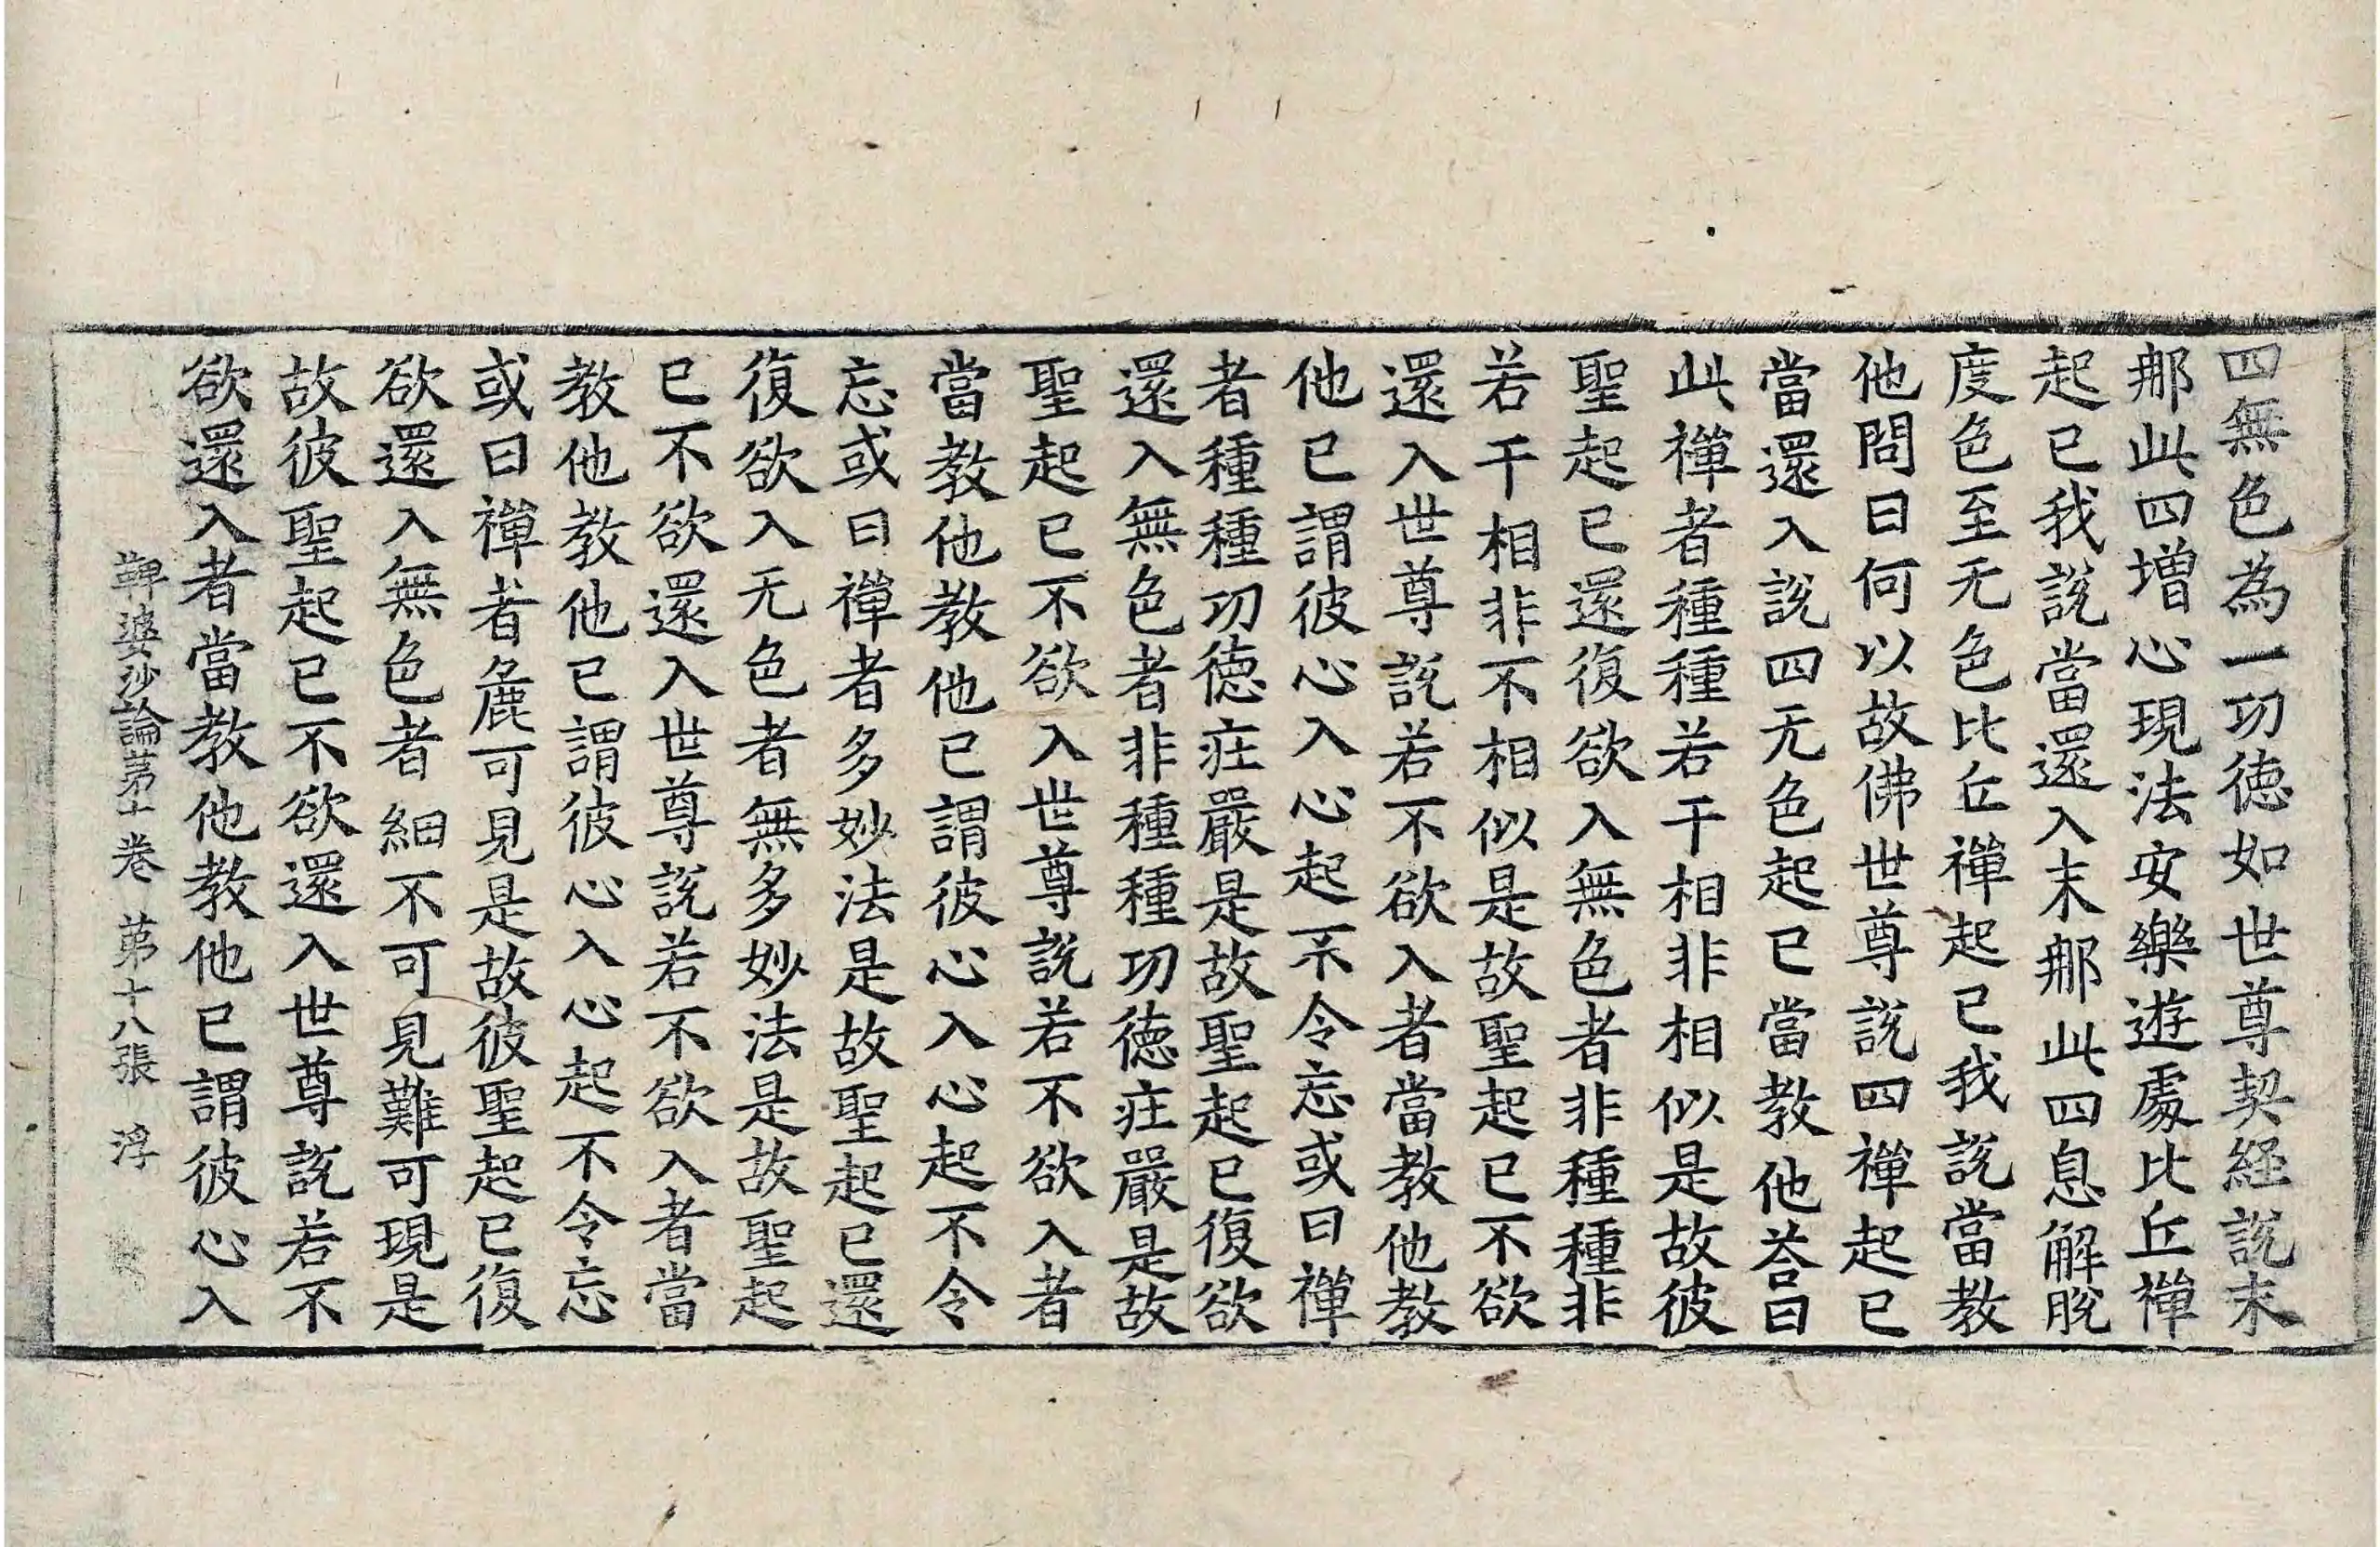 四無色為一功徳如世尊契経說末
那此四增心現法安樂遊處比丘禪
起已我說當還入末那此四息解脫
度色至无色比丘禪起已我說當教
他問曰何以故佛世尊說四禪起已
當還入說四无色起已當教他荅曰
此禪者種種若干相非相似是故彼
聖起已還復欲入無色者非種種非
若干相非不相似是故聖起已不欲
還入世尊說若不欲入者當教他教
他已謂彼心入心起不令忘或曰禪
者種種功徳莊嚴是故聖起已復欲
還入無色者非種種功徳莊嚴是故
聖起已不欲入世尊說若不欲入者
當教他教他已謂彼心入心起不令
忘或曰禪者多妙法是故聖起已還
復欲入无色者無多妙法是故聖起
已不欲還入世尊說若不欲入者當
教他教他已謂彼心入心起不令忘
或曰禪者麁可見是故彼聖起已復
欲還入無色者細不可見難可現是
故彼聖起已不欲還入世尊說若不
欲還入者當教他教他已謂彼心入
鞞婆沙論苐十卷 苐十八張 浮